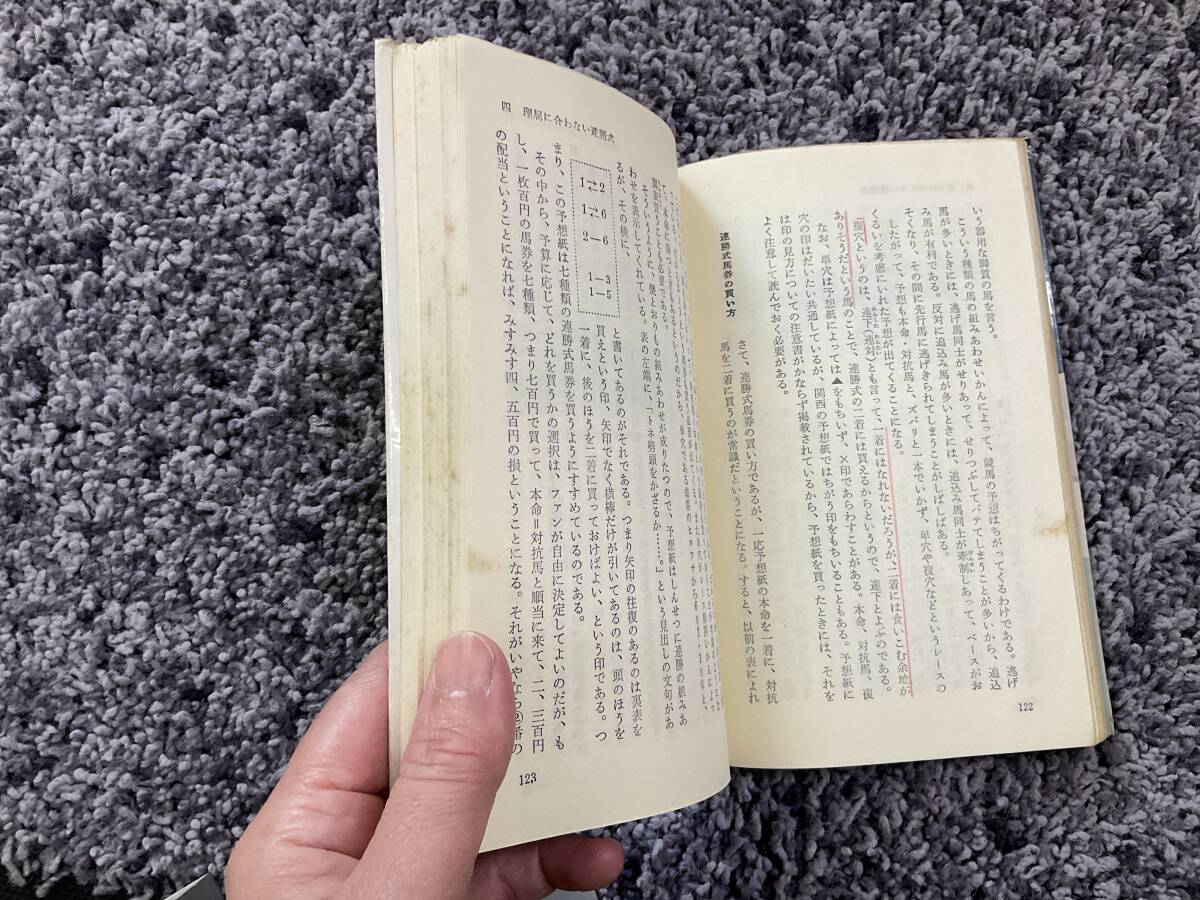 いう器用な脚質の馬を言う。
こういう種類の馬の組みあわせいかんによって、競馬の予想はちがってくるわけである。逃げ
馬が多いときには、逃げ馬同士がせりあって、せりつぶしてバテてしまうことが多いから、追込
み馬が有利である。反対に追込み馬が多いときには、追込み馬同士が牽制しあって、ペースがお
そくなり、その間に先行馬に逃げきられてしまうことがしばしばある。
したがって、予想も本命・対抗馬と、ズバリと一本でいかず、単穴や複穴などというレースの
くるいを考慮にいれた予想が出てくることになる。
複穴というのは、連下（連対）とも言って、一着にはなれないだろうが、二着には食いこむ余地が
ありそうだという馬のことで、連勝式の二着には買えるからというので、連下とよぶのである。
なお、単穴は予想紙によっては▲をもちいず、×印であらわすことがある。本命、対抗馬、複
穴の印はだいたい共通しているが、関西の予想紙ではちがう印をもちいることもある。予想紙に
は印の見方についての注意書がかならず掲載されているから、予想紙を買ったときには、それを
よく注意して読んでおく必要がある。
連勝式馬券の買い方
さて、連勝式馬券の買い方であるが、一応予想紙の本命を一着に、対抗
馬を二着に買うのが常識だということになる。すると、以前の表によれ
122
四 理屈に合わない連勝式
裏表買うことも必要である。
そういうように、幾とおりもの組みあわせが成りたつので、予想紙はしんせつに連勝の組みあ
わせを表示してくれている。表の左端に、「トネ劈頭をかざるか……。」という見出しの文句があ
るが、その横に、
1⇄2
1⇄6
2—6
1—3
1—5
と書いてあるのがそれである。つまり矢印の往復のあるのは裏表を
買えという印、矢印でなく横棒だけが引いてあるのは、頭のほうを
一着に、後のほうを二着に買っておけばよい、という印である。つ
まり、この予想紙は七種類の連勝式馬券を買うようにすすめているのである。
その中から、予算に応じて、どれを買うかの選択は、ファンが自由に決定してよいのだが、も
し、一枚百円の馬券を七種類、つまり七百円で買って、本命＝対抗馬と順当に来て、二、三百円
の配当ということになれば、みすみす四、五百円の損ということになる。それがいやなら②番の
123